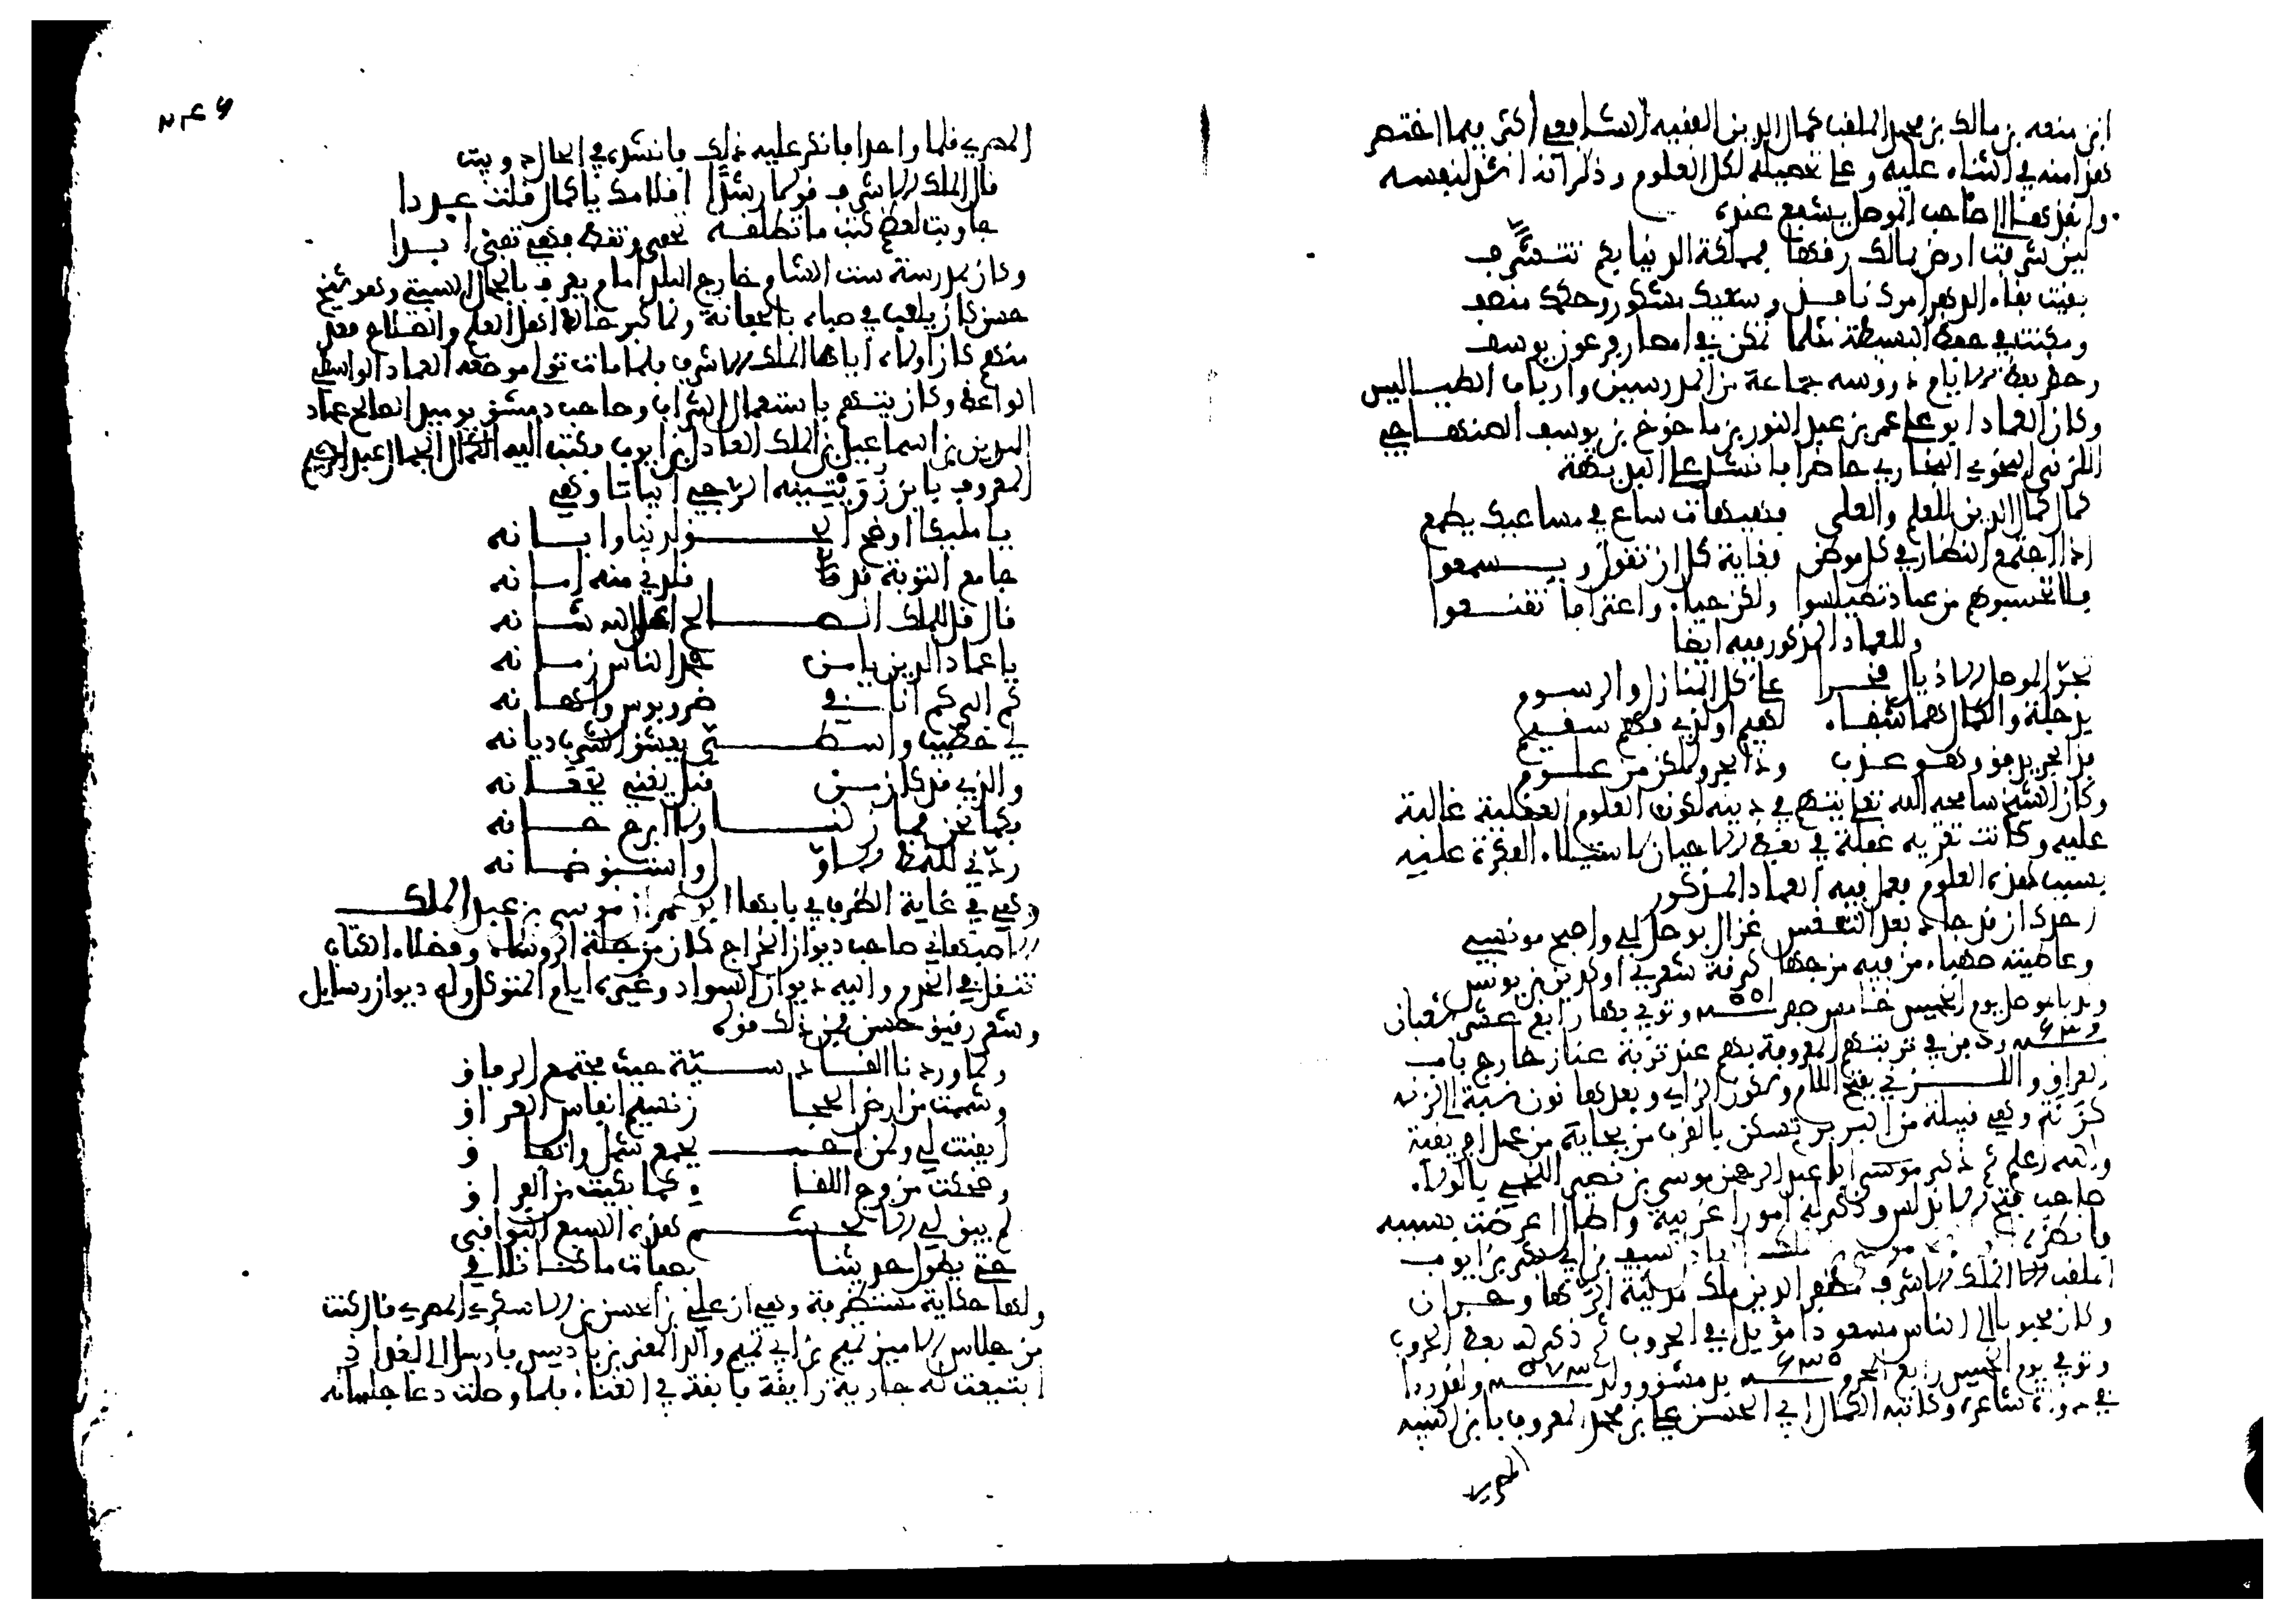 ابن منعه بن مالك بن محمد الملقب كمال الدين الفقيه الشافعي اكثر فيما اختصر
هذا منه في الثناء عليه وعلى تحصيله لكل العلوم وذكر انه انشد لنفسه
ولقد كتبها الى صاحب الموصل يشفع عنده
لين شرفت ارض بمالك رقها فمملكة الدنيا بكم تتشرف
بقيت بقاء الدهر امرك نافذ وسعيك مشكور وحكمك منصف
ومكنت في حفظ البسيطة مثلما تمكن في امصار فرعون يوسف
وحضر بعض الايام دروسه جماعة من المدرسين وارباب الطيالس
وكان العماد ابو علي عمر بن عبد النور بن ماخوخ بن يوسف الصنهاجي
اللزني النحوي البجاءي حاضرا فانشد على البديهة
كمال كمال الدين للعلم والعلى فهيهات ساع في مساعيك يطمع
اذا اجتمع النظار في كل موطن فغاية كل ان تقول ويسمعوا
فلا تحسبوهم من عناد تطيلسوا ولكن حياء واعترافا تقنعوا
وللعماد المذكور فيه ايضا
تجر الموصل الاذيال فخرا على كل المنازل والرسوم
بدجلة والكمال هما شفاء لهيم او لذي فهم سقيم
فذا بحر تدفق وهو عذب وذا بحر ولكن من علوم
وكان الشيخ سامحه الله تعالى يتهم في دينه لكون العلوم العقلية غالبة
عليه وكانت تعتريه غفلة في بعض الاحيان لاستيلاء الفكرة عليه
بسبب هذه العلوم فعمل فيه العماد المذكور
اجدك ان قد جاد بعد التعبس غزال بوصل لي واصبح مونسي
وعاطيته صهباء من فيه مزجها كرقة شعري او كدين بن يونس
ولد بالموصل يوم الخميس خامس صفر ٥٥١ وتوفي بها رابع عشر شعبان
٦٣٩ ودفن في تربتهم المعروفة بهم عند تربة عناز خارج باب
العراق واللزني بفتح اللام وسكون الزاي وبعدها نون نسبة الى لزنه
لزنة وهي قبيلة من البربر تسكن بالقرب من بجاية من عمل افريقية
والله اعلم ثم ذكر موسى ابا عبد الرحمن موسى بن نصير اللخمي بالولاء
صاحب فتح الاندلس وذكر له امورا غريبة واطال اعرضت بسببه
فانظره
الملقب الملك الاشرف مظفر الدين ملك مدينة الرها وحران
وكان محبوبا الى الناس مسعودا مؤيدا في الحروب ثم ذكر له بعض الحروب
وتوفي يوم الخميس رابع المحرم ٦٣٥ بدمشق وولد ٥٧٨
شاعره وكاتبه الكمال ابي الحسن علي بن محمد المعروف بابن النبيه
المصري
٢٤٦
المصري قلما واحدا فانكر عليه ذلك فانشده في الحال دوبيت
قال الملك الاشرف قولا رشدا اقلامك يا كمال قلت عددا
جاوبت لعظم كتب ما تطلقه تحفى وتقط فهي تفنى ابدا
وكان بمدرسة ست الشام خارج البلد امام يعرف بالجمال السبتي وهو شيخ
حسن كان يلعب في صباه بالجغانة ولما كبر خالط اهل العلم والصلاح فعد
منهم كان اولاه اياها الملك الاشرف فلما مات تولى موضعه العماد الواسطي
الواعظ وكان يتهم باستعمال الشراب وصاحب دمشق يوميذ الصالح عماد
الدين بن اسماعيل بن الملك العادل بن ايوب فكتب اليه الجمال عبد الرحيم
المعروف بابن زويتينه الرحبي ابياتا وهي
يا مليكا اوضح الحق لدينا وابانه
جامع التوبة قد قلدني منه امانه
قال قل للملك الصالح اعلى الله شانه
يا عماد الدين يا من حمد الناس زمانه
كم الى كم انا في ضر وبوس واهانه
لي خطيب واسطي يعشق الشرب ديانه
والذي قد كان من قبل يغني بجغانه
فكما نحن فما زلنا ولا ابرح حانه
ردني للنمط الاول واستبق ضمانه
وهي في غاية الظرف في بابها ابو عمران موسى بن عبد الملك
الاصبهاني صاحب ديوان الخراج كان من جلة الروساء وفضلاء الكتاب
تنقل في الخدم واليه ديوان السواد وغيره ايام المتوكل وله ديوان رسايل
وشعر رقيق حسن فمن ذلك قوله
لما وردنا القادسية حيث مجتمع الرفاق
وشممت من ارض الحجاز نسيم انفاس العراق
ايقنت لي ولمن احب بجمع شمل واتفاق
وضحكت من فرح اللقا كما بكيت من الفراق
لم يبق لي الا تجشم هذه السبع البواقي
حتى يطول حديثنا بصفات ما كنا نلاقي
ولها حكاية مستظرفة وهي ان علي بن الحسن بن الاسكري المصري قال كنت
من جلاس الامير تميم بن ابي تميم والد المعز بن باديس فارسل الى بغداد
ابتيعت له جارية رايقة فايقة في الغناء فلما وصلت دعا جلساءه